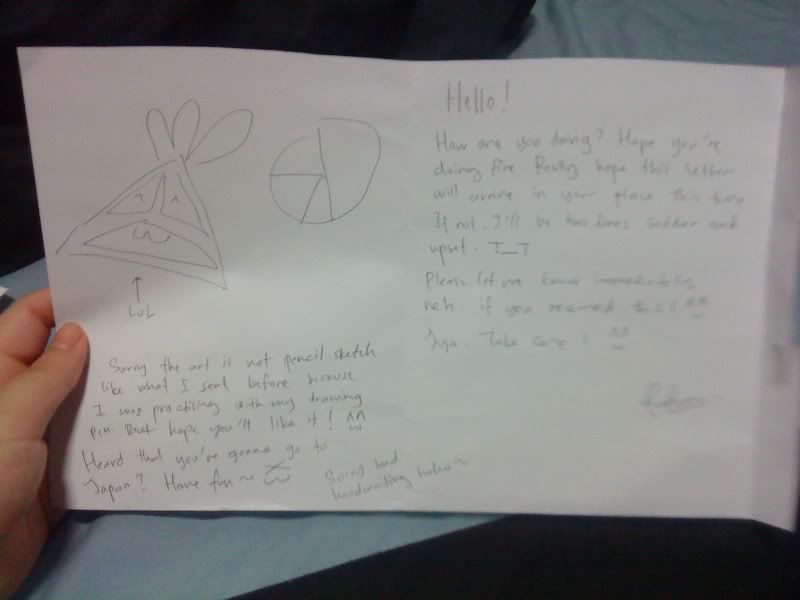 LOL
Sorry the art is not pencil sketch
like what I sent before because
I was practising with my drawing
pen. But hope you'll like it! ^^
Heard that you're gonna go to
Japan? Have fun~
Sorry bad
handwriting haha~
Hello!
How are you doing? Hope you're
doing fine. Really hope this letter
will arrive in your place this time
If not, I'll be two times sadder and
upset. T_T
Please let me know immediately
neh if you received this! ^^
Jya. Take care! ^^